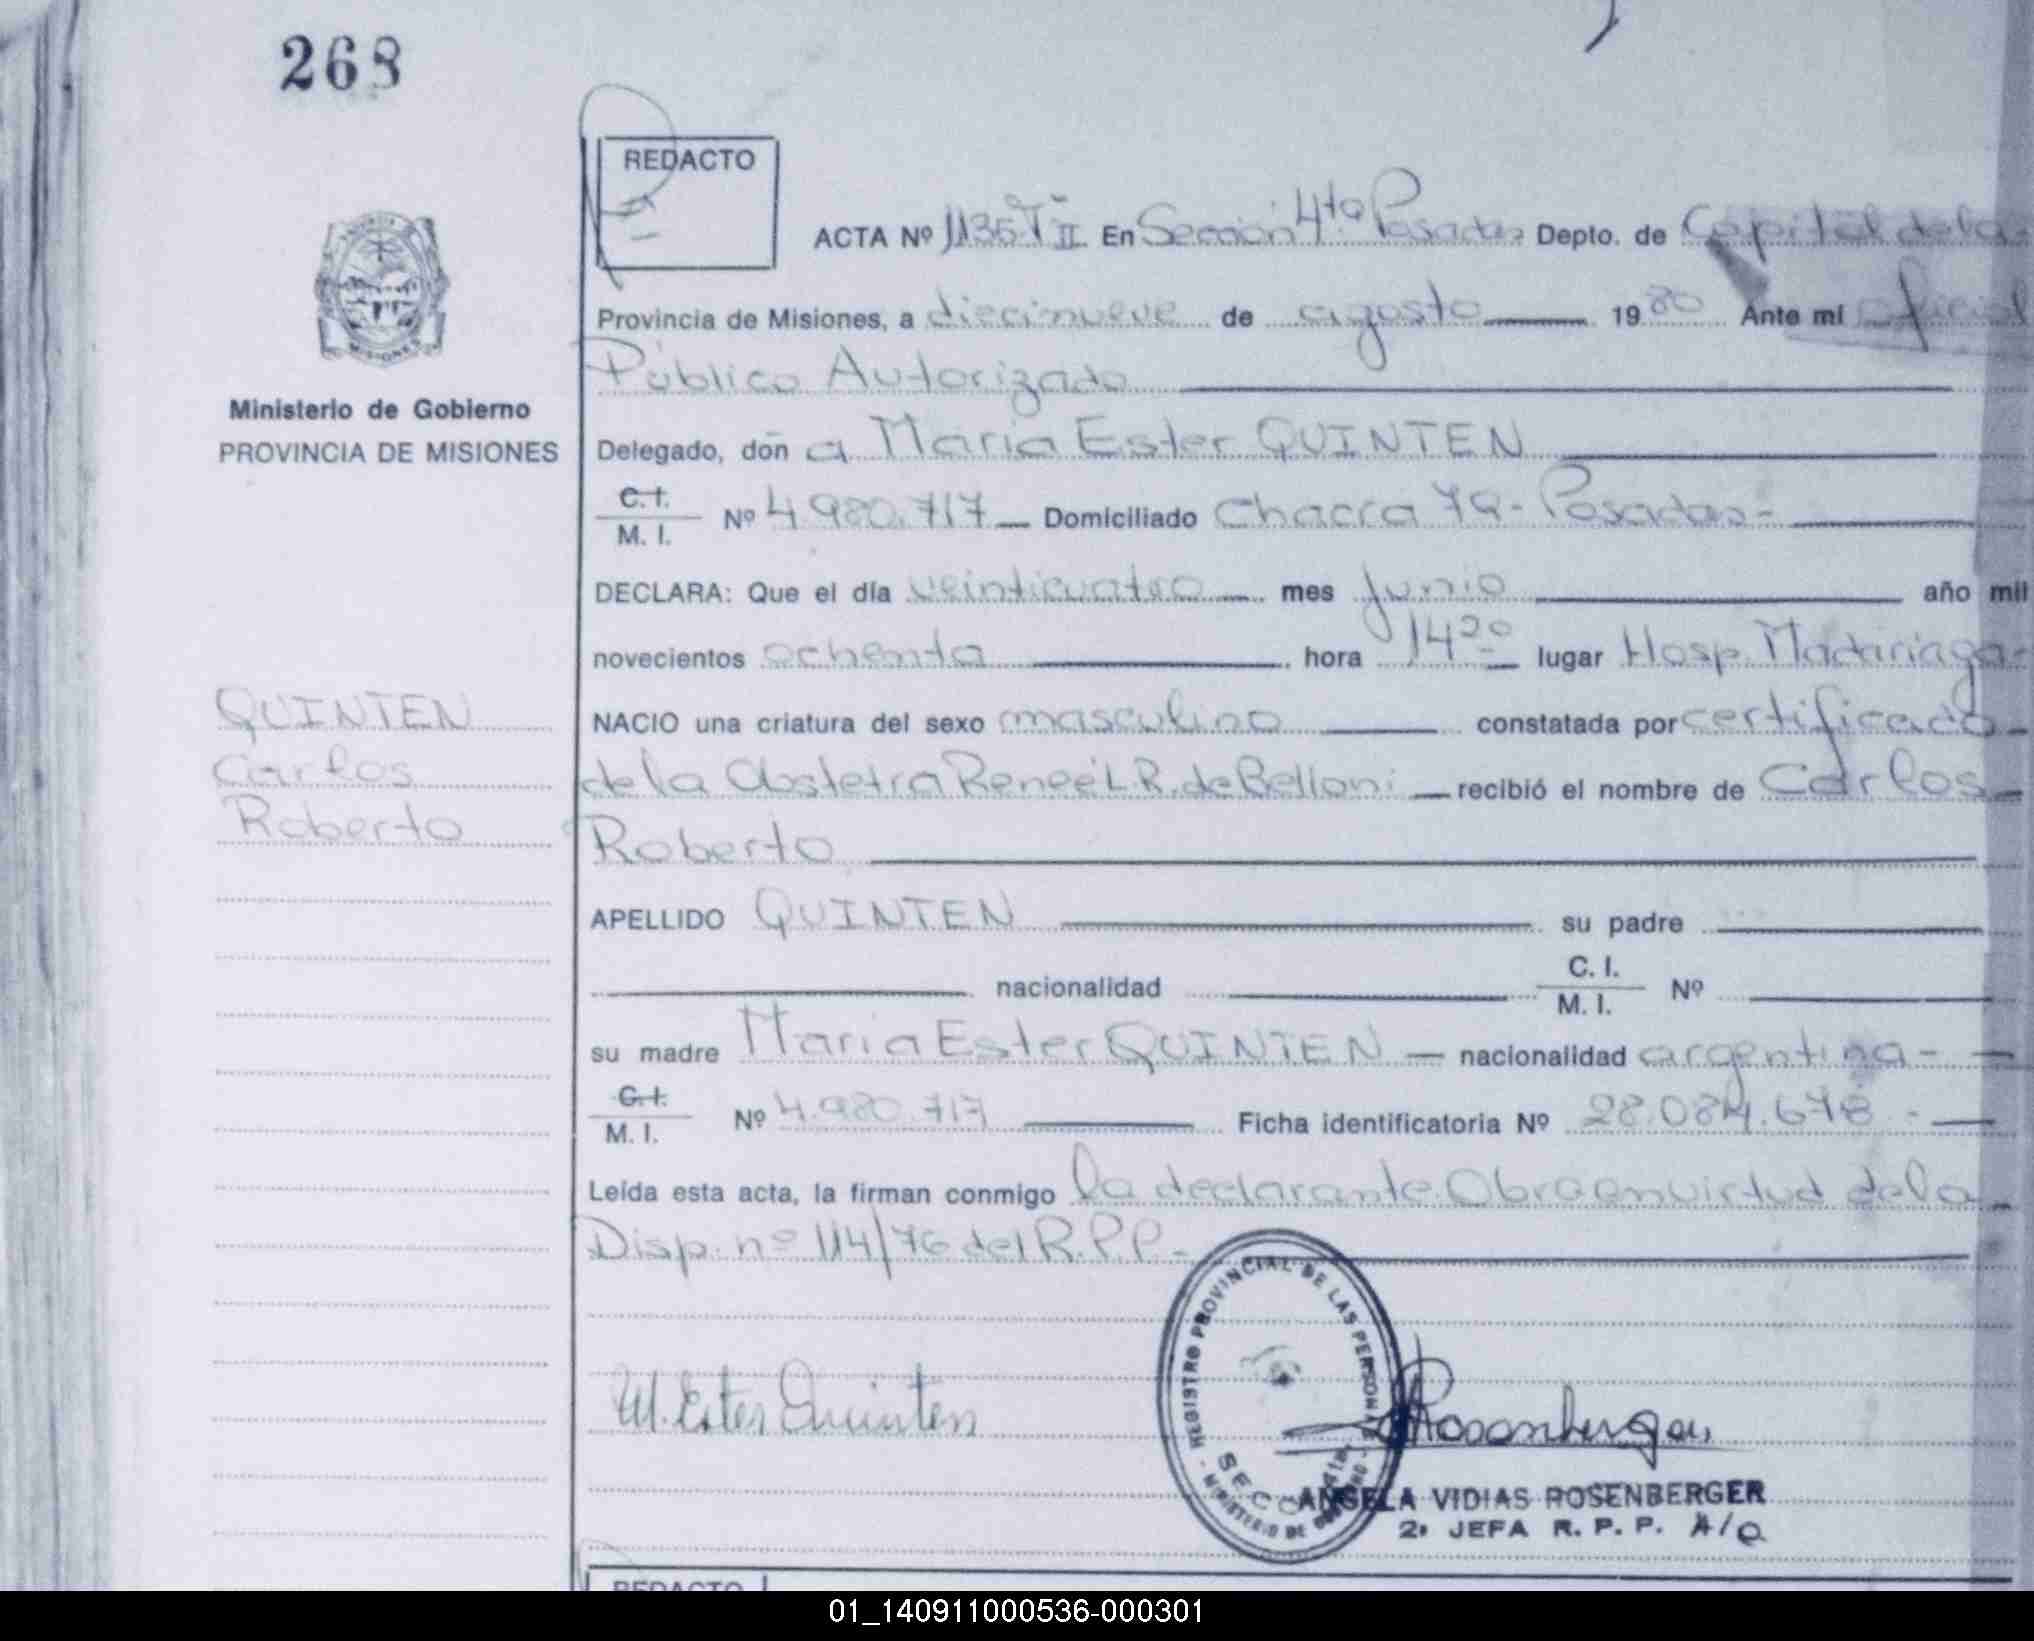 268
REDACTO
ACTA Nº 1135 T II En Sección 4ta Posadas Depto. de Capital de la
Provincia de Misiones, a diecinueve de agosto 1980 Ante mi oficial
Público Autorizado
Ministerio de Gobierno
PROVINCIA DE MISIONES
Delegado, don a Maria Ester QUINTEN
C.I. M. I. Nº 4.980.717 Domiciliado Chacra 79 - Posadas -
DECLARA: Que el día veinticuatro mes Junio año mil
novecientos ochenta hora 14 20 lugar Hosp. Madariaga -
QUINTEN
Carlos
Roberto
NACIO una criatura del sexo masculino constatada por certificado
de la Obstetra Reneé L.R. de Belloni recibió el nombre de Carlos
Roberto
APELLIDO QUINTEN su padre
nacionalidad C. I. M. I. Nº
su madre Maria Ester QUINTEN nacionalidad argentina -
C.I. M. I. Nº 4.980.717 Ficha identificatoria Nº 28.084.678 -
Leída esta acta, la firman conmigo la declarante. Obra en virtud de la
Disp. nº 114/76 del R.P.P. -
REGISTRO PROVINCIAL DE LAS PERSONAS
MINISTERIO DE GOBIERNO
M. Ester Quinten
Rosenberger
ANGELA VIDIAS ROSENBERGER
2ª JEFA R. P. P. A/C
REDACTO
01_140911000536-000301